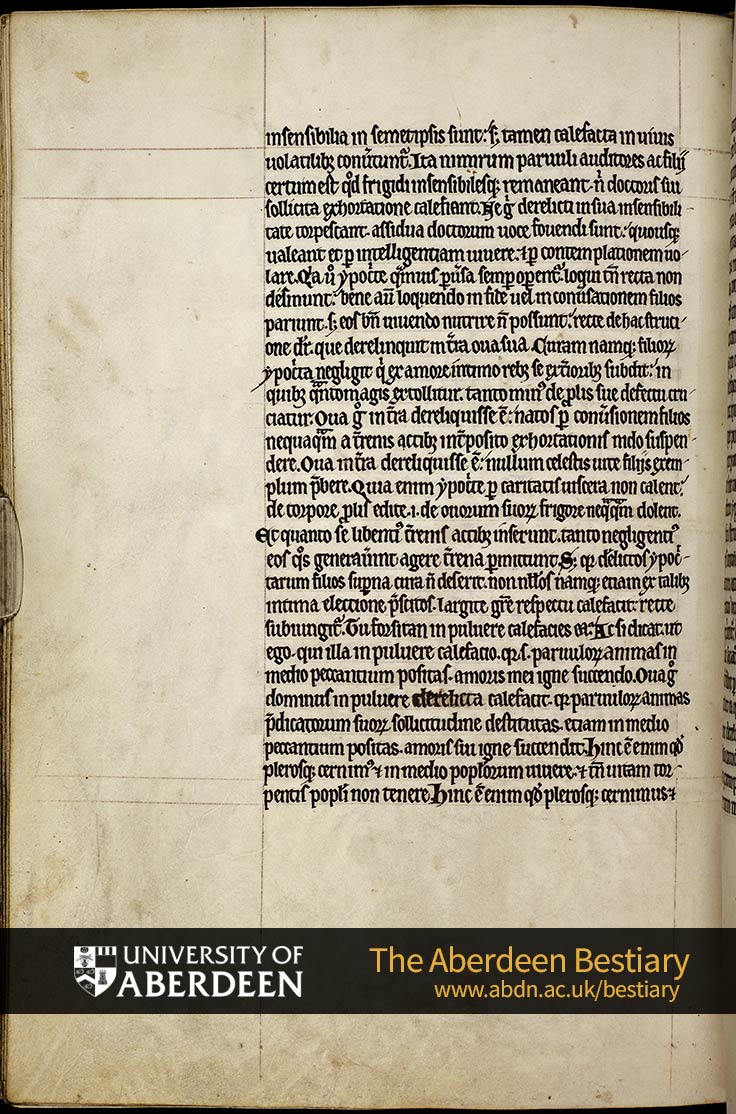 insensibilia in semetipsis sunt: s; tamen calefacta in uiuis
uolatilibꝫ conũtunt᷑. Ita nimirum paruuli auditores ac filij
certum est qd̾ frigidi insensibilesqꝫ remaneant. ñ doctoris sui
sollicita exhortatione calefiant. Ne g̊ derelicti in sua insensibili-
tate torpescant. assidua doctorum uoce fouendi sunt: quousqꝫ
ualeant et ꝑ intelligentiam uiuere: ⁊ ꝑ contemplationem uo-
lare. Q̾a ũ ẏpoc̾te q̃muis ꝑũsa semꝑ oꝑent᷑. loqui tñ recta non
desinunt: bene aũ loquendo in fide uel in conũsationem filios
pariunt. s; eos bñ uiuendo nutrire ñ possunt: recte de hac struci-
one dr̃. que derelinquit in t̃ra oua sua. Curam namqꝫ filioꝝ
ẏpoc̾ta negligit q̾ ex amore intimo rebꝫ se ext̾ioribꝫ subdit: in
quibꝫ q̃ntomagis extollitur. tanto min᷒ de ꝓlis sue defectu cru-
ciatur. Oua g̊ in t̃ra dereliquisse ẽ: natos ꝑ conũsionem filios
nequaq̃m a t̾renis actibꝫ int̾posito exhortationis nido suspen-
dere. Oua in t̃ra dereliquisse ẽ: nullum celestis uite filijs exem-
plum p̃bere. Quia enim ẏpoc̾te ꝑ caritatis uiscera non calent:
de torpore ꝓlis edite .i. de ouorum suoꝝ frigore neq̃q̃m dolent.
Et quanto se libenti᷒ t̾renis actibꝫ inserunt. tanto negligenti᷒
eos q̊s generaũnt agere t̾rena ꝑmittunt. S; qꝛ delictos ẏpoc̾-
tarum filios suꝑna cura ñ deserit. non illos namqꝫ etiam ex talibꝫ
intima electione p̃scitos. largite gr̃e respectu calefacit: recte
subiungit᷑. Tu forsitan in puluere calefacies ea: Ac si dicat. ut
ego. qui illa in puluere calefacio. qꝛ .s. paruuloꝝ animas in
medio peccantium positas. amoris mei igne succendo. Oua g̊
dominus in puluere derelicta calefacit. qꝛ paruuloꝝ animas
p̃dicatorum suoꝝ sollicitudine destitutas. etiam in medio
peccantium positas. amoris sui igne succendit. Hinc ẽ enim qd̾
plerosqꝫ cernim᷒ ⁊ in medio popl̾orum uiuere. ⁊ tñ uitam tor-
pentis popl̾i non tenere. Hinc ẽ enim qd̾ plerosqꝫ cernimus ⁊
UNIVERSITY OF
ABERDEEN
The Aberdeen Bestiary
www.abdn.ac.uk/bestiary